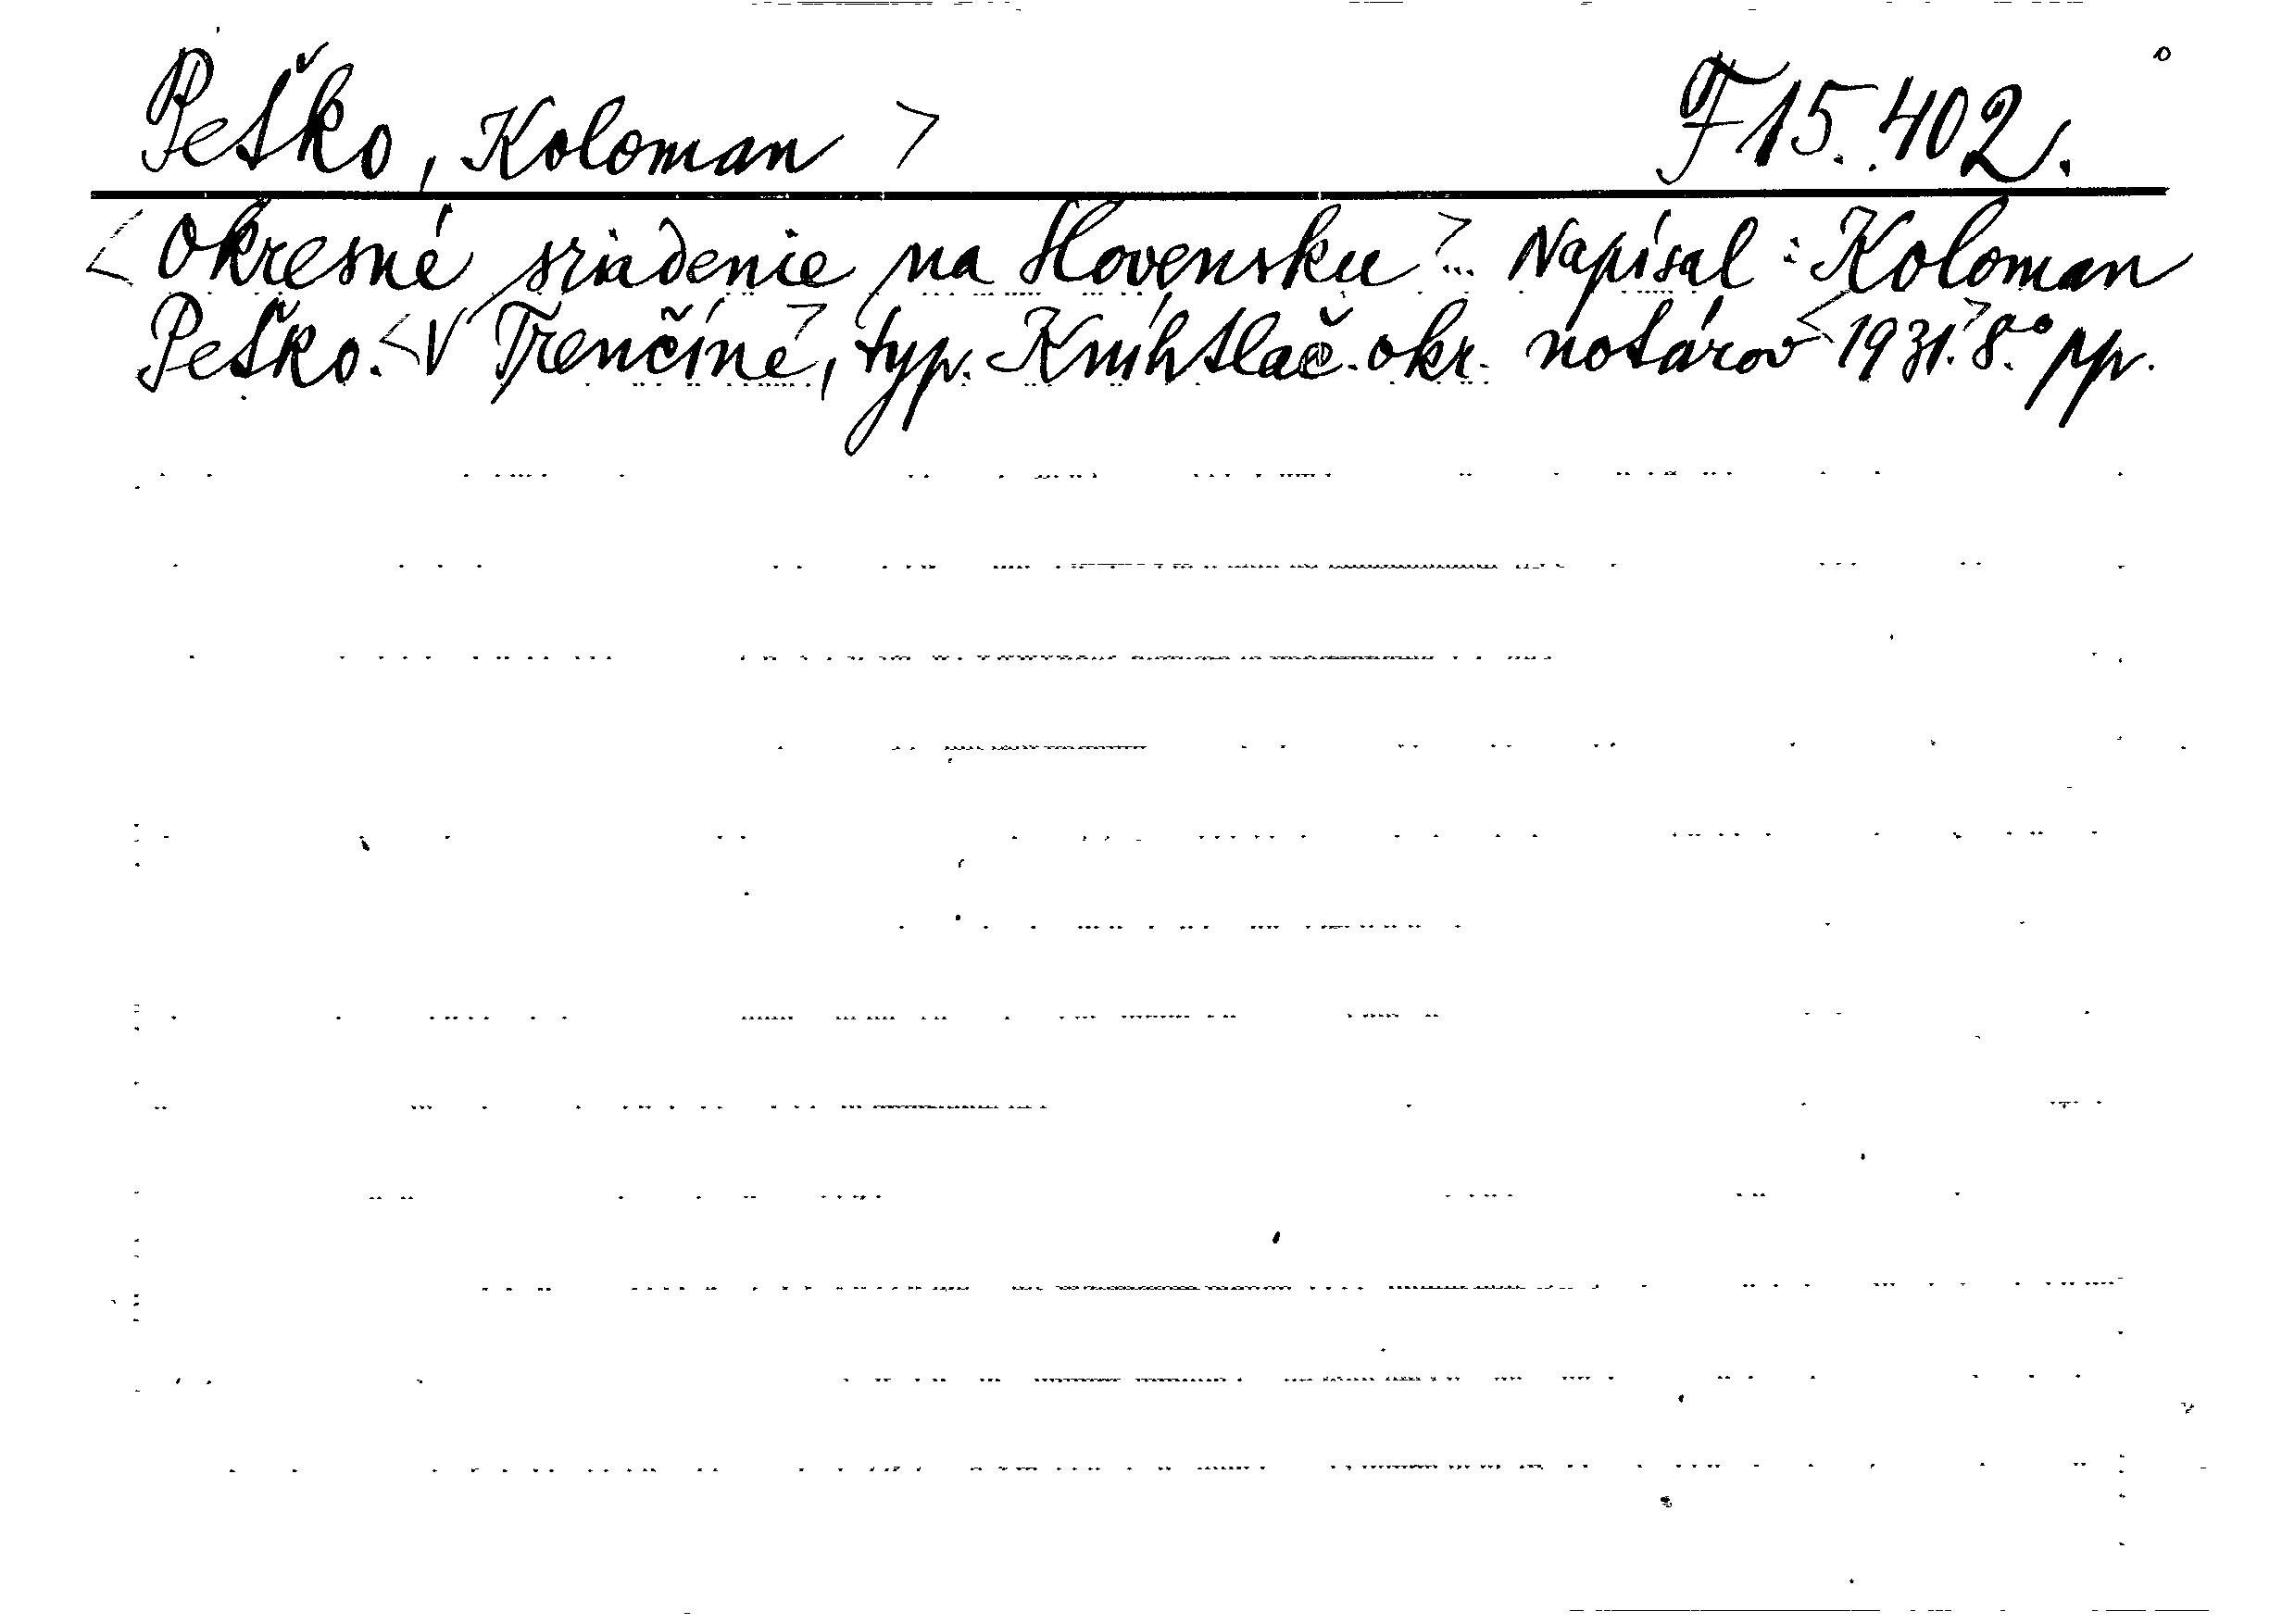 Peško, Koloman > F 15.402.
<Okresné sriadenie na Slovensku>... Napísal: Koloman
Peško. <V Trenčíne>, typ. Kníhtlač. okr. notárov <1931.> 8.° pp.